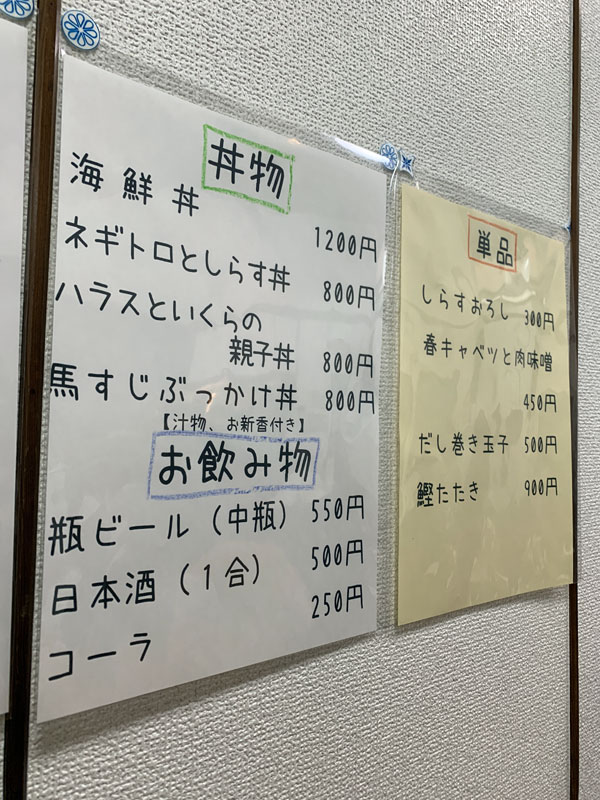 丼物
海鮮丼
1200円
ネギトロとしらす丼
800円
ハラスといくらの
親子丼 800円
馬すじぶっかけ丼 800円
【汁物、お新香付き】
お飲み物
瓶ビール（中瓶） 550円
日本酒（1合） 500円
コーラ 250円
単品
しらすおろし 300円
春キャベツと肉味噌
450円
だし巻き玉子 500円
鰹たたき 900円